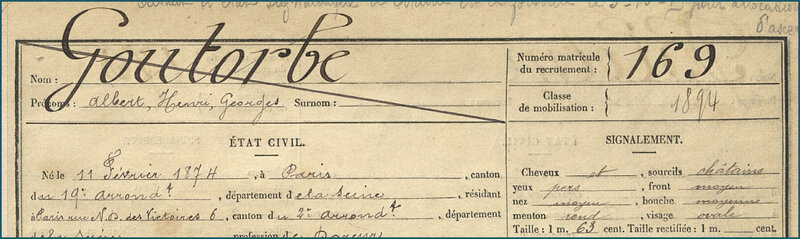 Goutorbe
Nom :
Prénoms : Albert, Henri, Georges Surnom :
Numéro matricule du recrutement : 169
Classe de mobilisation : 1894
ÉTAT CIVIL.
Né le 11 Février 1874, à Paris, canton
du 19e arrondt, département de la Seine, résidant
à Paris rue N.D. des Victoires 6, canton du 2e arrondt, département
de la Seine, profession de
SIGNALEMENT.
Cheveux et, sourcils châtains
yeux pers, front moyen
nez moyen, bouche moyenne
menton rond, visage ovale
Taille : 1m. 63 cent. Taille rectifiée : 1 m.